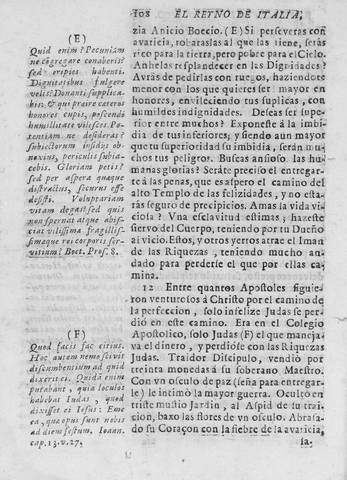 108 EL REYNO DE ITALIA,
(E)
Quid enim? Pecuniam
ne congregare conaberis?
sed eripies habenti.
Dignitatibus fulgere
velis? Donanti supplica-
bis, & qui præire cæteros
honores cupis, poscendi
humilitate vilesces. Po-
tentiam ne desideras?
subiectorum insidus ob-
noxius, periculis subia-
cebis. Gloriam petis?
sed per aspera quæque
distractus, securus esse
desistis. Voluptariam
vitam degas? sed quis
non spernat atque abijs-
ciat vilissima fragillis-
simæque rei corporis ser-
vitium? Boet. Pros. 8.
(F)
Quod facis fac citius.
Hoc autem nemo scivit
discumbentium ad quid
dixerit ei. Quidà enim
putabant, quia loculos
habebat Iudas, quod
dixisset ei Iesus: Eme
ea, quæ opus sunt nobis
ad diem festum. Ioann.
cap. 13. v. 27.
zia Anicio Boecio. (E) Si perseveras con
avaricia, robaraslas al que las tiene, serás
rico para la tierra, pero pobre para el Cielo.
Anhelas resplandecer en las Dignidades?
Avràs de pedirlas con ruegos, haziendote
menor con los que quieres ser mayor en
honores, envileciendo tus suplicas, con
humildes indignidades. Deseas ser supe-
rior entre muchos? Exponeste à la imbi-
dia de tus inferiores; y siendo aun mayor
que tu superioridad su imbidia, serán mu-
chos tus peligros. Buscas ansioso las hu-
manas glorias? Seráte preciso el entregar-
te à las penas, que es aspero el camino del
alto Templo de las felicidades, y no esta-
rás seguro de precipicios. Amas la vida vi-
ciosa? Vna esclavitud estimas; hazeste
siervo del Cuerpo, teniendo por tu Dueño
al vicio. Estos, y otros yerros atrae el Iman
de las Riquezas, teniendo mucho an-
dado para perderse el que por ellas ca-
mina.
12 Entre quantos Apostoles siguie-
ron venturosos à Christo por el camino de
la perfeccion, solo infelize Judas se per-
dió en este camino. Era en el Colegio
Apostolico, solo Judas (F) el que maneja-
va el dinero, y perdióse con las Riquezas
Judas. Traidor Discipulo, vendiò por
treinta monedas à su soberano Maestro.
Con vn osculo de paz (seña para entregar-
le) le intimó la mayor guerra. Ocultó en
triste mustio Jardin, al Aspid de su trai-
cion, baxo las flores de vn osculo. Abrasa-
do su Coraçon con la fiebre de la avaricia,
la